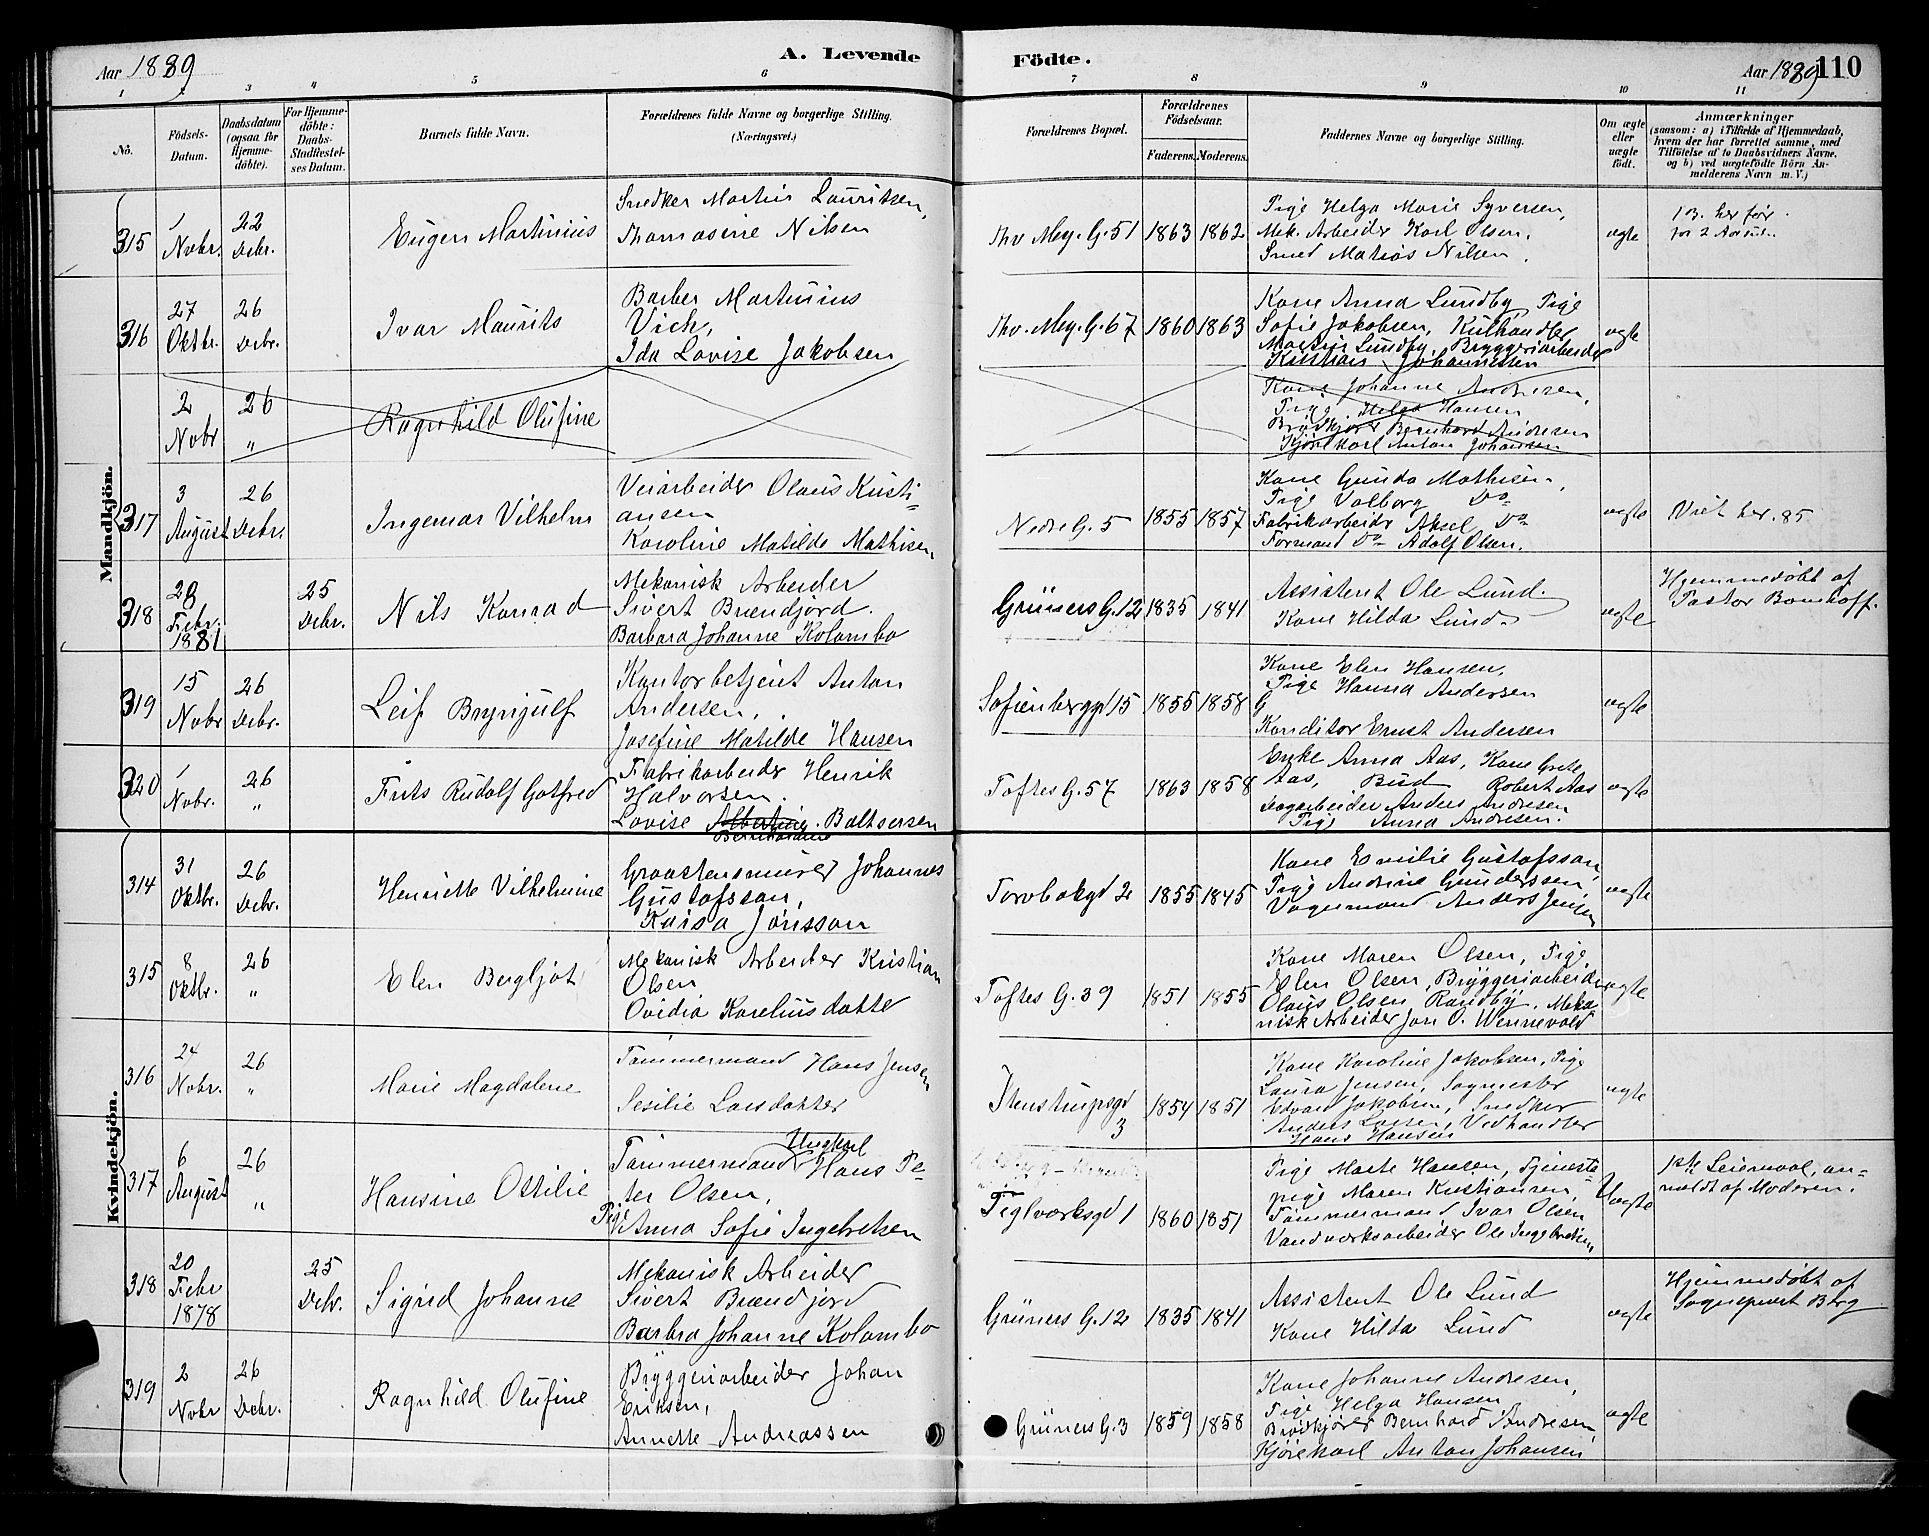 Aar 1889
A. Levende
Födte.
Aar 1889
110
1 2 3 4 5 6 7 8 9 10 11
No.
Födsels-
Datum.
Daabsdatum
(ogsaa for
Hjemme-
döbte).
For Hjemme-
döbte:
Daabs-
Stadfestel-
ses Datum.
Barnets fulde Navn.
Forældrenes fulde Navne og borgerlige Stilling.
(Næringsvei.)
Forældrenes Bopæl.
Forældrenes
Födselsaar.
Faderens.
Moderens.
Faddernes Navne og borgerlige Stilling.
Om ægte
eller
uægte
födt.
Anmærkninger
(saasom: a) i Tilfælde af Hjemmedaab,
hvem der har forrettet samme, med
Tilföielse af to Daabsvidners Navne,
og b) ved uægtefödte Börn An-
melderens Navn m. V.)
Mandkjön.
315
1
Novbr.
22
Debr.
Eugen Martinius
Snedker Martin Lauritsen,
Thomasine Nilsen
Thv. Mey. G. 51
1863
1862
Pige Helga Marie Syversen,
Mek. Arbeider Karl Olsen,
Smed Matias Nilsen.
ægte
1 B. her før
for 2 Aar sid.
316
27
Oktbr.
26
Debr.
Ivar Maurits
Barber Martinius
Vich,
Ida Lovise Jakobsen
Thv. Mey. G. 67
1860
1863
Kone Anna Lundby, Pige
Sofie Jakobsen, Kulhandler
Martin Lundby, Bryggeriarbeider
Kristian Johannesen
ægte
2
Novbr
26
"
Ragnhild Olufine
Kone Johanne Andresen,
Pige Helga Hansen
Brødkjører Bernhard Andresen
Kjørekarl Anton Johansen
317
3
August
26
Debr.
Ingemar Vilhelm
Veiarbeider Olaus Kristi-
ansen
Karoline Matilde Mathisen
Nedre G. 5
1855
1857
Kone Gunda Mathisen,
Pige Valborg Do
Fabrikarbeider Aksel Do
Formand Do Adolf Olsen.
ægte
Viet her. 85
318
28
Febr.
1881
25
Debr.
Nils Konrad
Mekanisk Arbeider
Sivert Brændjord.
Barbara Johanne Kolombo
Grüners G. 12
1835
1841
Assistent Ole Lund.
Kone Hilda Lund
ægte
Hjemmedøbt af
Pastor Bomhoff.
319
15
Novbr
26
Debr.
Leif Brynjulf
Kontorbetjent Anton
Andersen,
Josefine Matilde Hansen
Sofienberggd 15
1855
1858
Kone Elen Hansen,
Pige Hanna Andersen
G
Konditor Ernst Andersen
ægte
320
1
Novbr.
26
"
Frits Rudolf Gotfred
Fabrikarbeider Henrik
Halvorsen.
Lovise Albertine Baltsersen
Bernhardine
Toftes G. 57
1863
1858
Enke Anna Aas, Kone Grete
Aas, Bud Robert Aas
Sagarbeider Anders Andresen
Pige Anna Andresen.
ægte
Kvindekjön.
314
31
Oktbr.
26
Debr.
Henriette Vilhelmine
Graastensmurer Johannes
Gustafsson,
Kaisa Jonsson
Torvbakgd 2
1855
1845
Kone Emilie Gustafsson,
Pige Andrine Gunderssen
Vognmand Anders Jensen
ægte
315
8
Oktbr.
26
"
Elen Bergljot
Mekanisk Arbeider Kristian
Olsen
Ovidia Korneliusdatter
Toftes G. 39
1851
1855
Kone Maren Olsen, Pige
Elen Olsen, Bryggeriarbeider
Olaus Olsen Randby, Meka-
nisk Arbeider Jon O. Wennevold
ægte
316
24
Novbr.
26
"
Marie Magdalene
Tømmermand Hans Jensen
Sesilie Larsdatter
Stenstrupsgd
3
1854
1851
Kone Karoline Jakobsen, Pige
Laura Jensen, Sagmester
Edvard Jakobsen, Snedker
Anders Larsen, Vedhandler
Hans Hansen
ægte
317
6
August
26
"
Hansine Ottilie
Ungkarl
Tømmermand Hans Pe-
ter Olsen,
Pige Anna Sofie Ingebretsen
Teglværksgd 1
1860
1851
Pige Marte Hansen, Tjeneste-
pige Maren Kristiansen,
Tømmermand Ivar Olsen
Vandværksarbeider Ole Ingebretsen
Uægte
1ste Leiermaal, an-
meldt af Moderen.
318
20
Febr
1878
25
Debr.
Sigrid Johanne
Mekanisk Arbeider
Sivert Brændjord
Barbra Johanne Kolombo
Grüners G. 12
1835
1841
Assistent Ole Lund
Kone Hilda Lund
ægte
Hjemmedøbt af
Sognepræst Berg
319
2
Novbr
26
Debr.
Ragnhild Olufine
Bryggeriarbeider Johan
Eriksen,
Annette Andreassen
Grüners G. 3
1859
1858
Kone Johanne Andresen,
Pige Helga Hansen
Brødkjører Bernhard Andresen,
Kjørekarl Anton Johansen
ægte